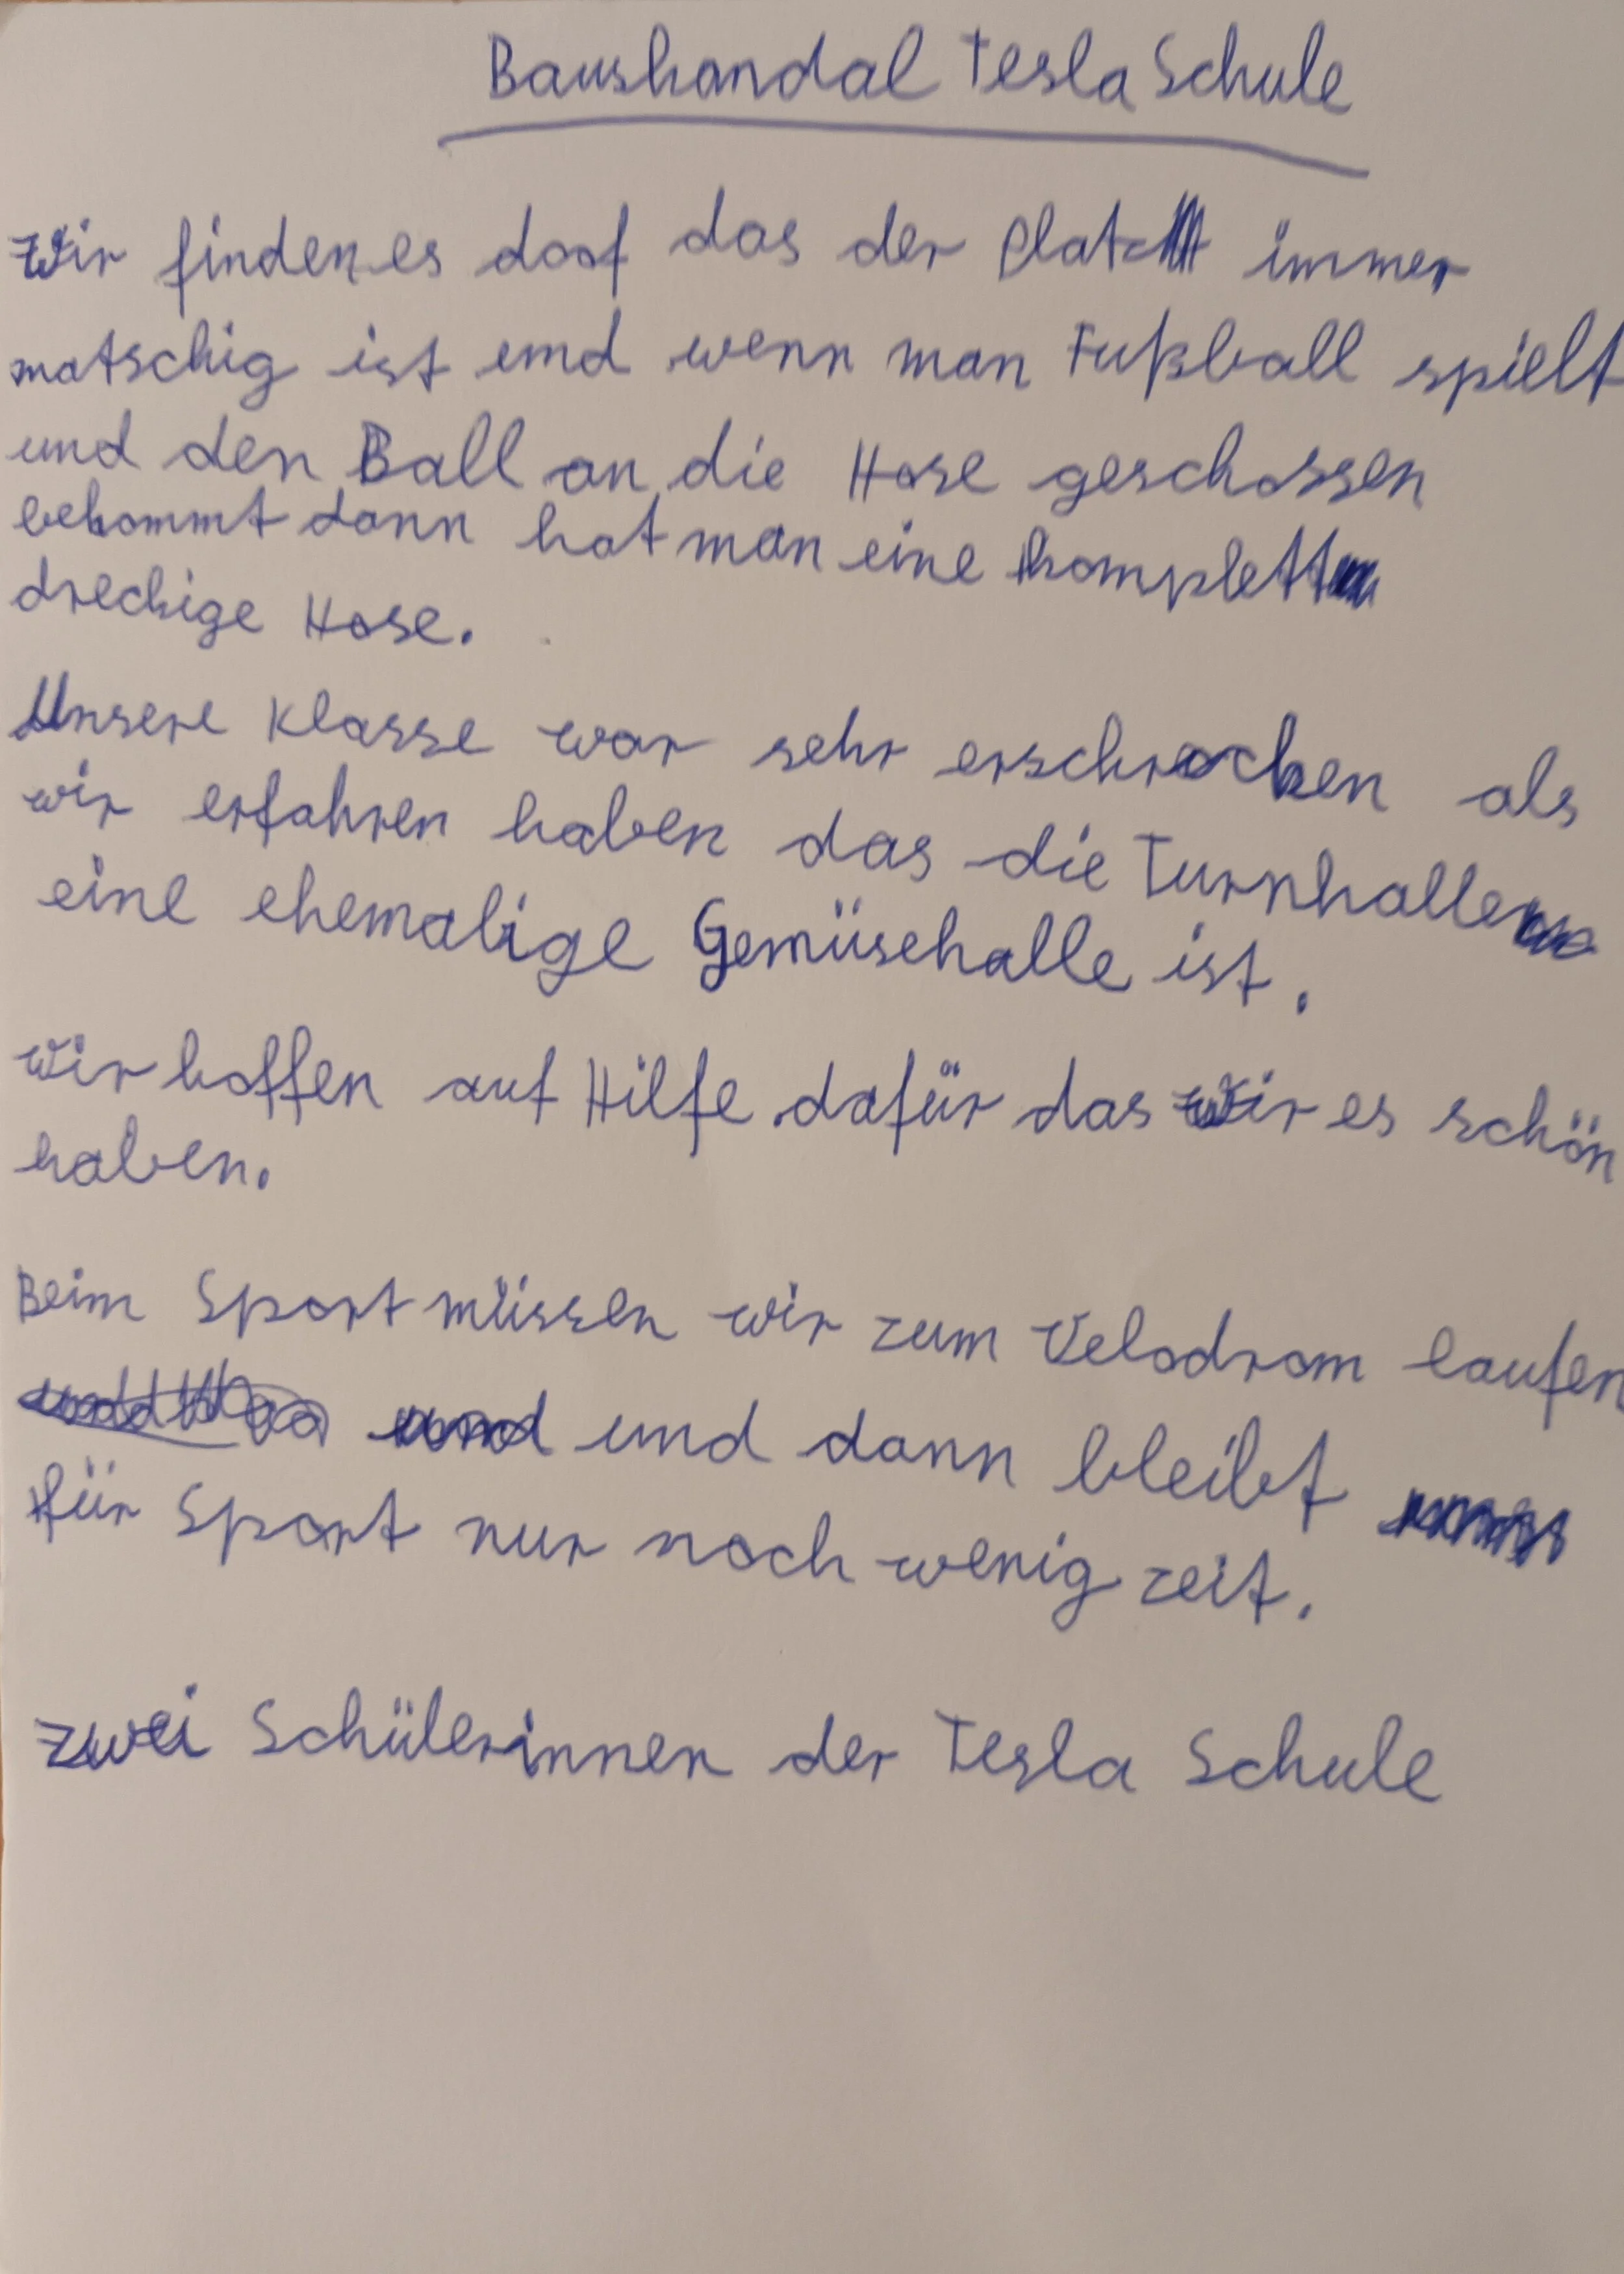 Bauskandal Tesla Schule
Wir finden es doof das der Platz immer
matschig ist und wenn man Fußball spielt
und den Ball an die Hose geschossen
bekommt dann hat man eine komplett
dreckige Hose.
Unsere Klasse war sehr erschrocken als
wir erfahren haben das die Turnhalle
eine ehemalige Gemüsehalle ist.
Wir hoffen auf Hilfe dafür das wir es schön
haben.
Beim Sport müssen wir zum Velodrom laufen
und dann bleibt
für Sport nur noch wenig zeit.
zwei Schülerinnen der Tesla Schule